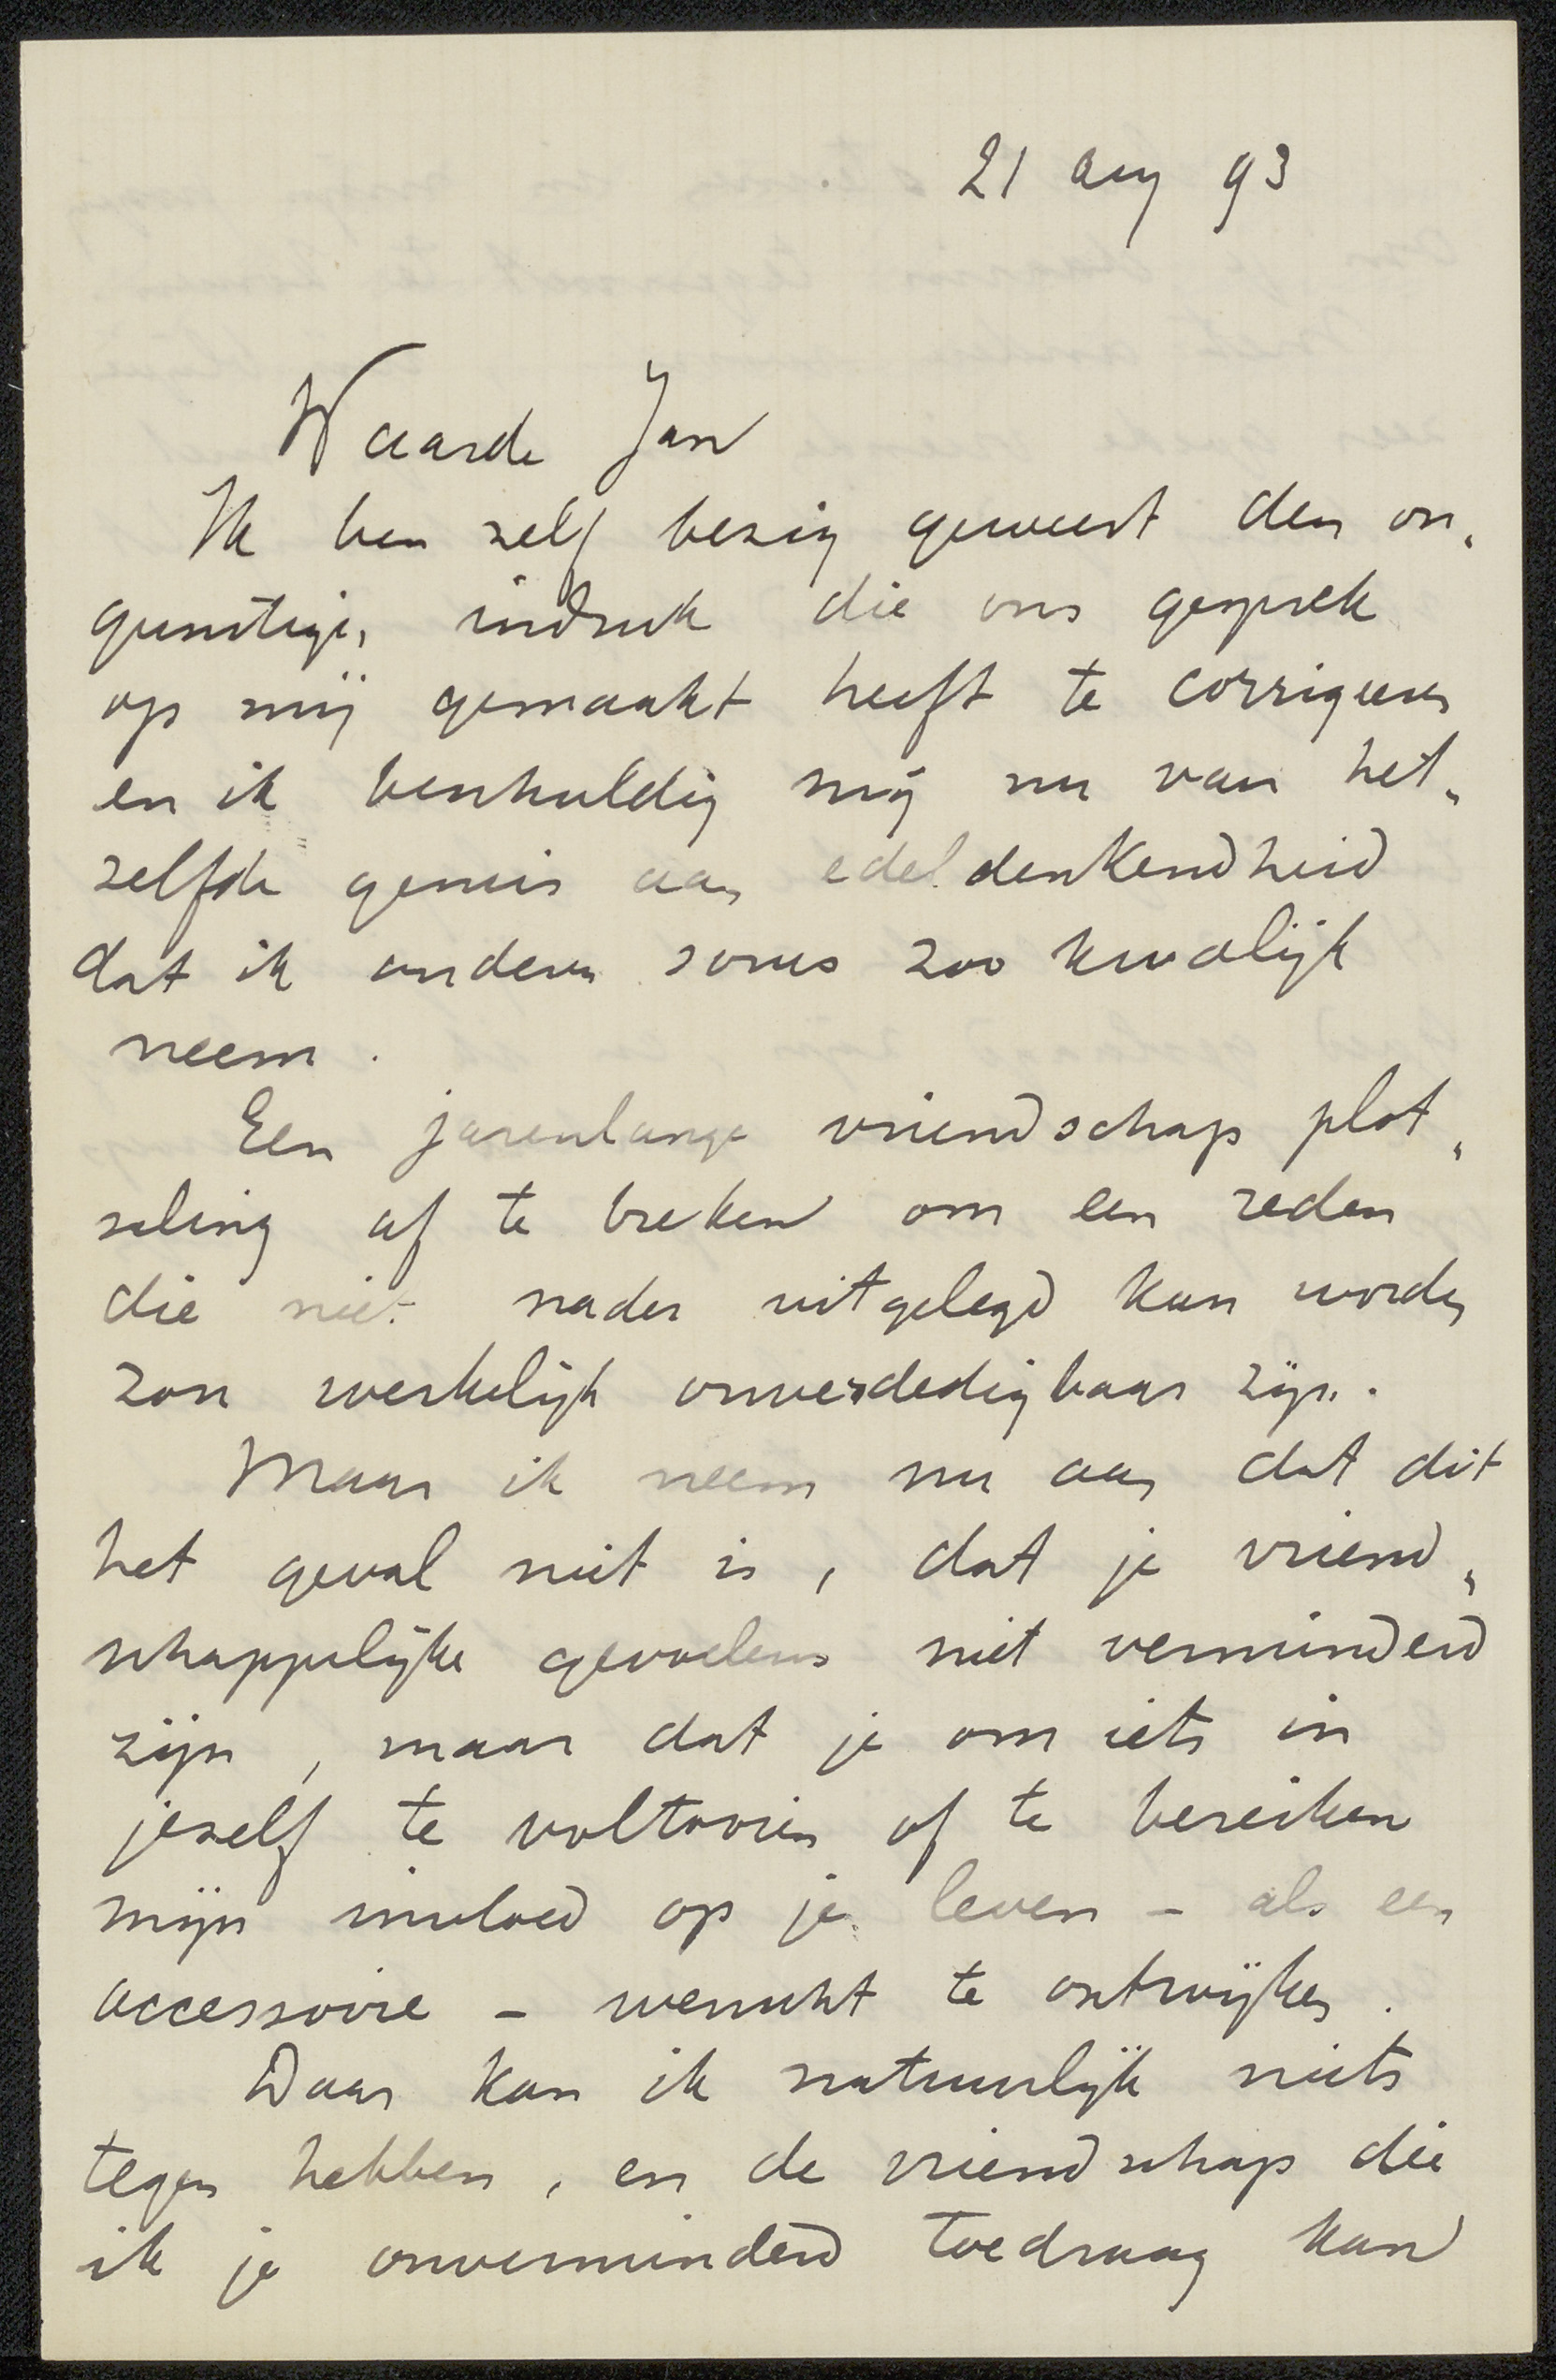 21 Aug 93
Waarde Jan
Ik ben zelf bezig geweest den on„
gunstigen indruk die ons gesprek
op mij gemaakt heeft te corrigeeren
en ik beschuldig mij nu van het„
zelfde gemis aan edeldenkendheid
dat ik anderen soms zoo kwalijk
neem.
Een jarenlange vriendschap plot„
seling af te breken om een reden
die niet nader uitgelegd kan worden
zou werkelijk onverdedigbaar zijn.
Maar ik neem nu aan dat dit
het geval niet is, dat je vriend„
schappelijke gevoelens niet verminderd
zijn, maar dat je om iets in
jezelf te voltooien of te bereiken
mijn invloed op je leven – als een
accessoire – wenscht te ontwijken.
Daar kan ik natuurlijk niets
tegen hebben, en de vriendschap die
ik je onverminderd toedraag kan